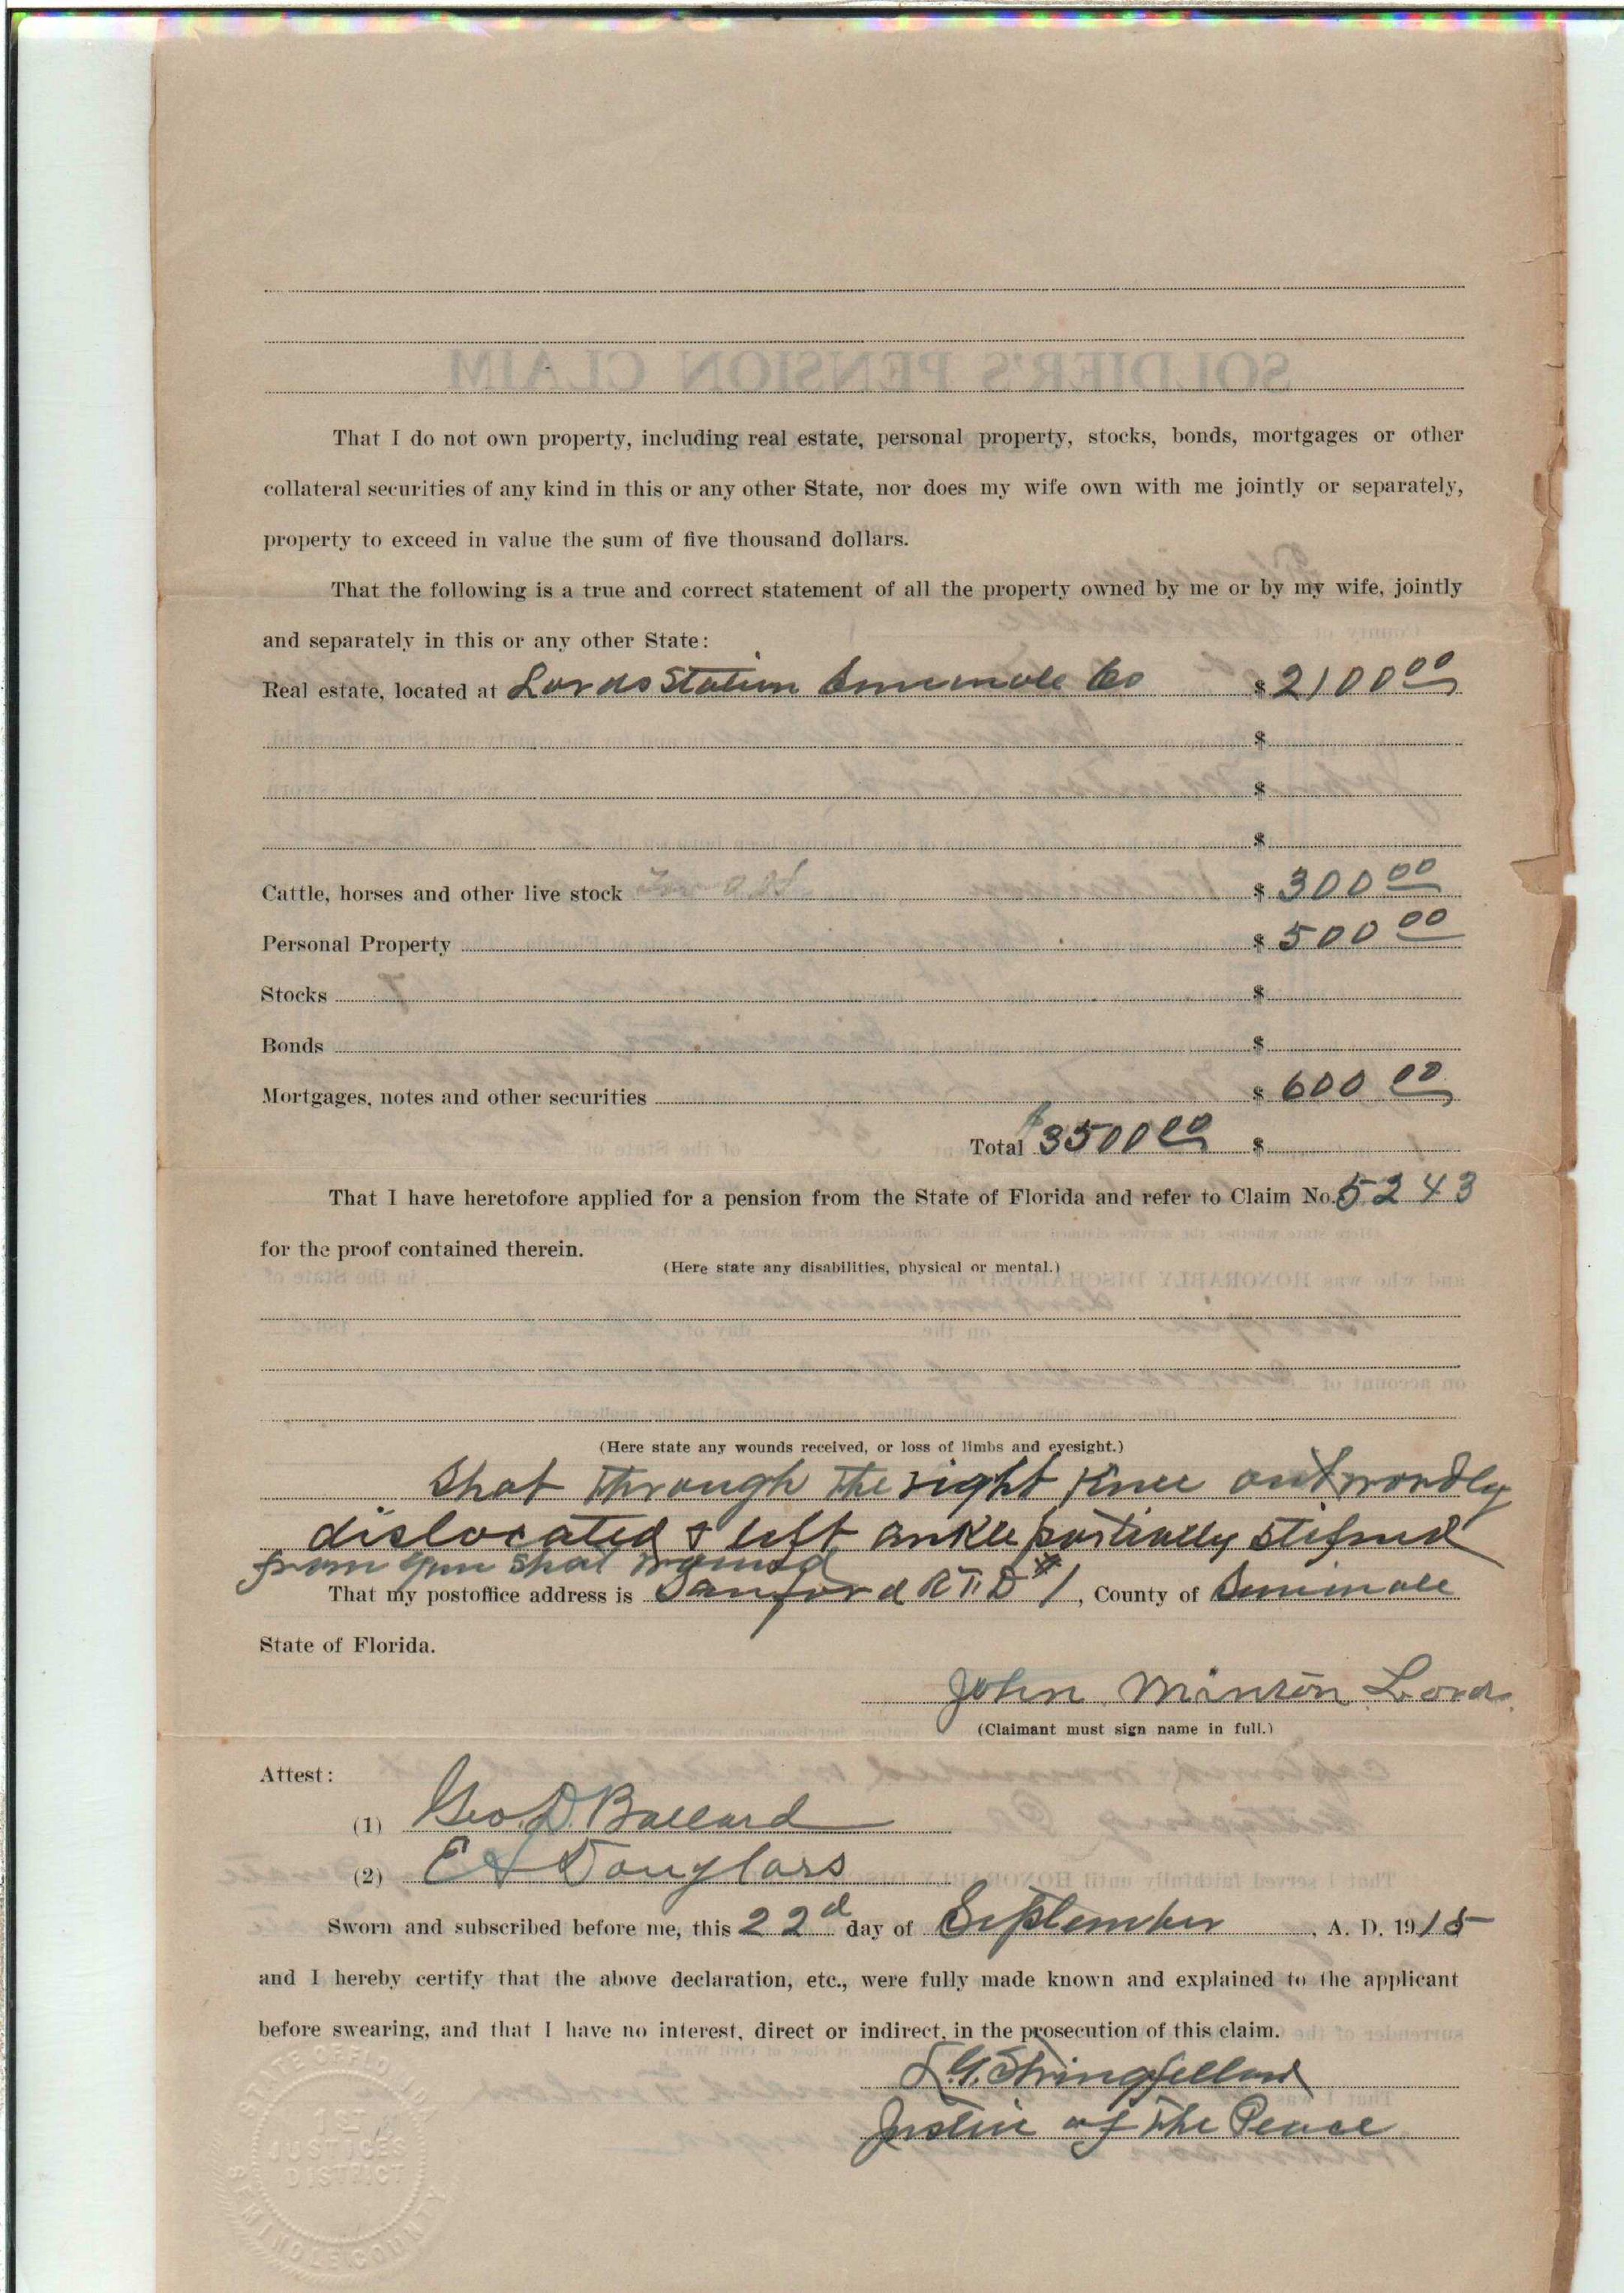 That I do not own property, including real estate, personal property, stocks, bonds, mortgages or other
collateral securities of any kind in this or any other State, nor does my wife own with me jointly or separately,
property to exceed in value the sum of five thousand dollars.
That the following is a true and correct statement of all the property owned by me or by my wife, jointly
and separately in this or any other State:
Real estate, located at Lords Station Seminole Co $ 2100 00
$
$
$
Cattle, horses and other live stock $ 300 00
Personal Property $ 500 00
Stocks $
Bonds $
Mortgages, notes and other securities $ 600 00
Total $3500 00 $
That I have heretofore applied for a pension from the State of Florida and refer to Claim No. 5243
for the proof contained therein.
(Here state any disabilities, physical or mental.)
(Here state any wounds received, or loss of limbs and eyesight.)
Shot through the right Knee outwordly
dislocated & left ankle partially stifned
from gun shot wound
That my postoffice address is Sanford R.F.D #1, County of Seminole
State of Florida.
John Minton Lord
(Claimant must sign name in full.)
Attest:
(1) Geo. D. Ballard
(2) E A Douglass
Sworn and subscribed before me, this 22d day of September, A. D. 1915
and I hereby certify that the above declaration, etc., were fully made known and explained to the applicant
before swearing, and that I have no interest, direct or indirect, in the prosecution of this claim.
L. G. Stringfellow
Justice of the Peace
STATE OF FLORIDA
1ST
JUSTICES
DISTRICT
SEMINOLE COUNTY